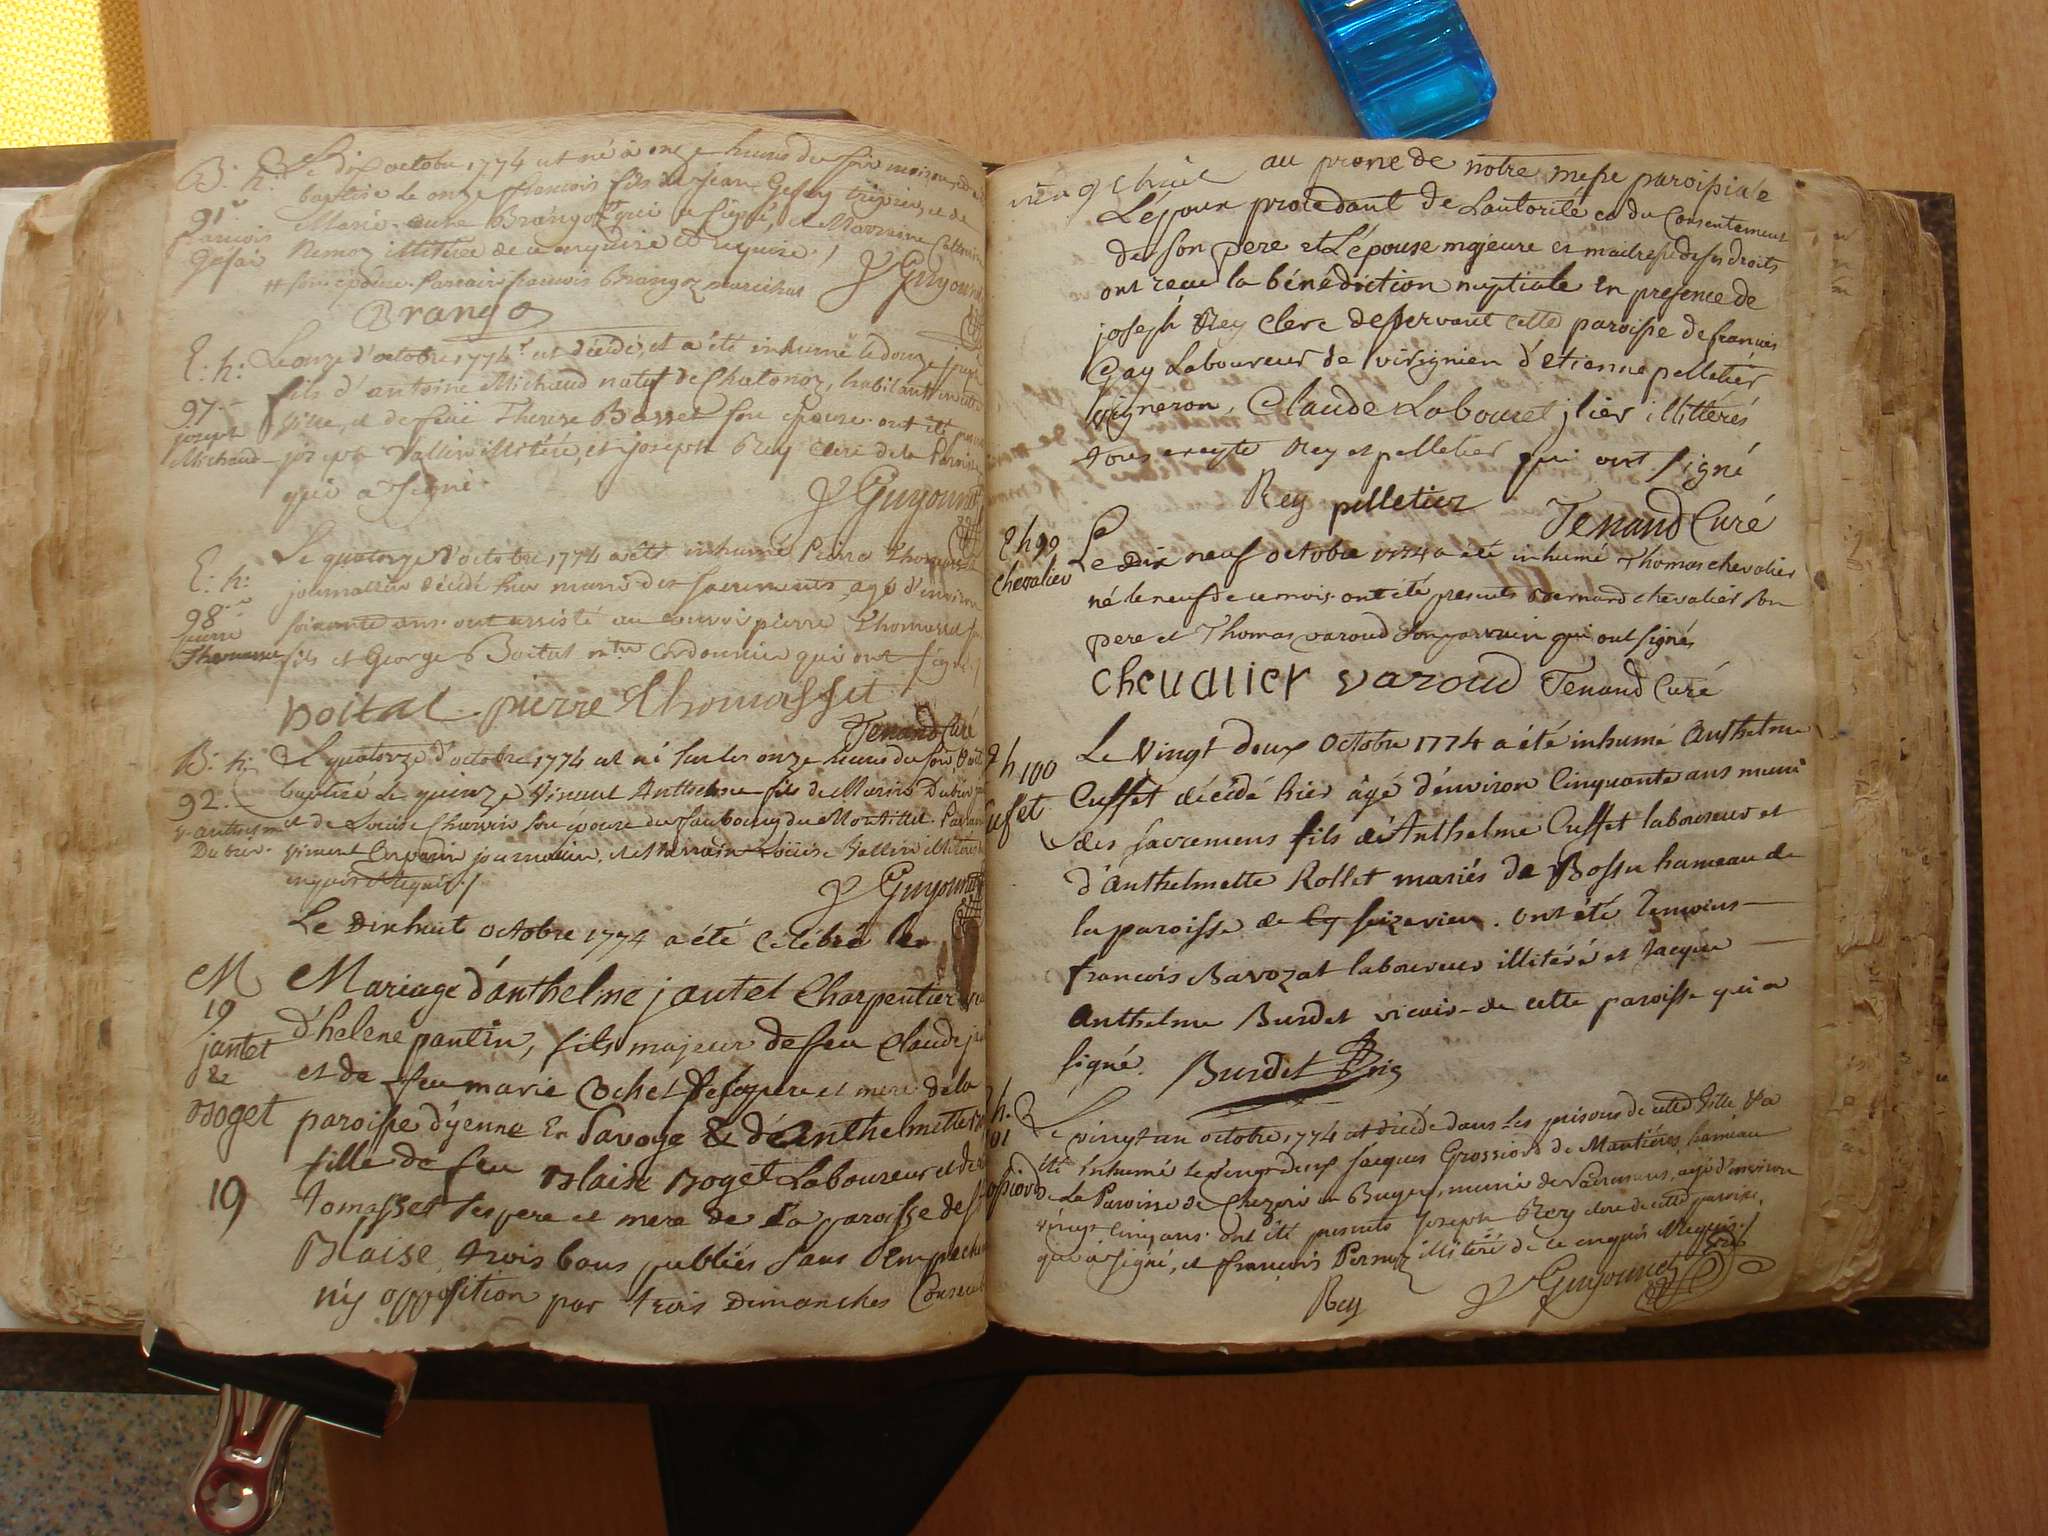 B: h: Le dix octobre 1774 est né à onze heures du soir
91e baptisé le onze françois fils de Jean Gefay
françois Marie Brangoz qui a signé, et Marraine
Gefai Remoz illitérée de ce enquise et requise ./
son épouse. Parrain françois Brangoz marechal J Guyonnet
Brango
E: h: Le onze d'octobre 1774 est décédé, et a été inhumé le douze joseph
97 fils d'antoine Michaud natif de Chatonoz, habitant en cette
joseph ville, et de feüe Therese Basset son epouse. ont été
Michaud joseph Vallin illitéré, et joseph Rey clerc de la Paroisse
qui a signé. J Guyonnet
E: h: Le quatorze d'octobre 1774 a été inhumé Pierre Thomasset
98 journallier décédé hier muni des sacrements agé d'environ
pierre soixante ans. ont assisté au convoi pierre Thomasset son
Thomasset fils et George Boitat mtre Cordonnier qui ont signé ./
boitat pierre Thomasset
Tenand Curé
B: h: Le quatorze d'octobre 1774 est né sur les onze heures du soir
92 baptisé le quinze Vincent Anthelme fils de Marin Dubier
v. anthelme et de Louise Charvin son épouse du faubourg du
Dubier journalier, et Marraine Loüise Vallin illitérés
enquis et requis ./ J Guyonnet
Le dixhuit octobre 1774 a été célébré le
M Mariage d'anthelme jantet Charpentier
19 d'helene pantin, fils majeur de feu Claude
jantet et de feu marie Cochet ses père et mere de la
& paroisse d'yenne En Savoye & d'Anthelmette
Boget fille de feu Blaise Boget Laboureur et de
19 Tomasset ses pere et mere de la paroisse de St
Blaise, trois bans publiés sans Empeche
n'y opposition par trois dimanches Consecu
au prone de notre messe paroissiale
Lépoux procedant de Lautorité et du Consentement
de son pere et Lépouse majeure et maitresse de ses droits
ont recu la bénédiction nuptiale En presence de
joseph Rey clerc desservant cette paroisse de francois
Gay Laboureur de virignien d'etienne pelletier
vigneron, Claude Labouret, illittérés
tous excepté Rey et pelletier qui ont signé
Rey pelletier Tenand Curé
E h 99 Le dix neuf octobre 1774 a été inhumé Thomas chevalier
chevalier né le neuf de ce mois. ont été presents Bernard chevalier son
pere et Thomas varoud son parrain qui ont signés
chevalier varoud Tenand Curé
E h 100 Le vingt deux octobre 1774 a été inhumé Anthelme
Cufet Cuffet décédé hier âgé d'environ Cinquante ans muni
des sacremens fils de Anthelme Cuffet laboureur et
d'Anthelmette Rollet mariés de Bossu hameau de
la paroisse de seizerieu. ont été temoins
françois Bavozat laboureur illitéré et Jacque
Anthelme Burdet vicaire de cette paroisse qui a
signé. Burdet Vric
h. Le vingt un octobre 1774 est décédé dans les prisons de cette Ville & a
01 été inhumé le vingt deux Jacques Grossiord de Mantières hameau
ossiord de La Paroisse de Chezeri en Bugey, munie de Sacremens, agé d'environ
vingt Cinq ans. ont été presents Joseph Rey clerc de cette paroisse,
qui a signé, et françois Pernuz illitéré de ce enquis et requis ./
Rey J Guyonnet